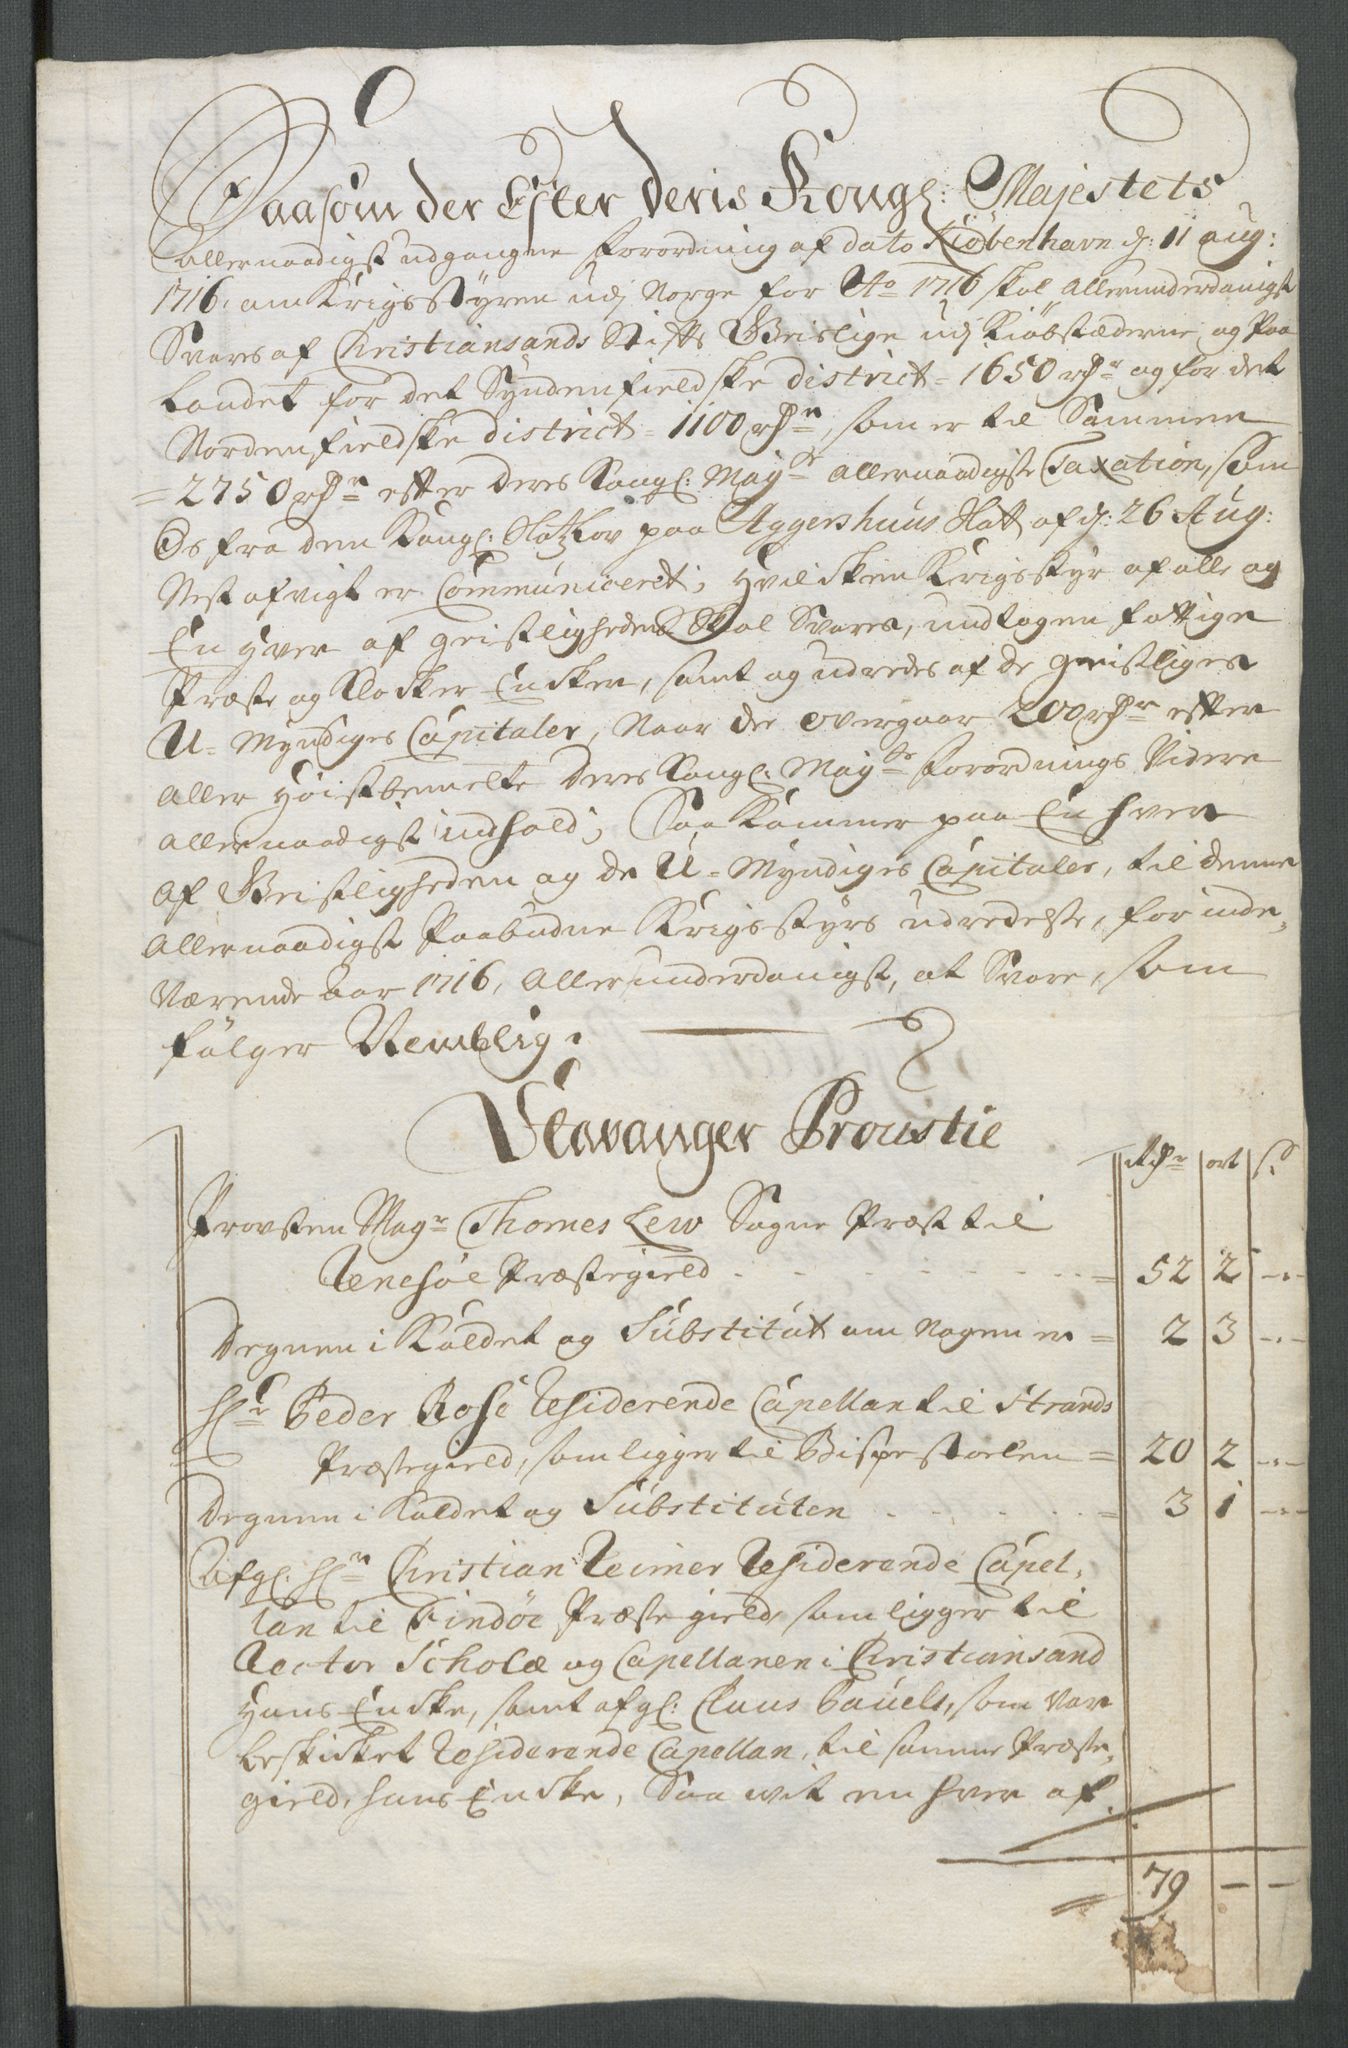 Saasom der Efter Deris Kongl: Majestets
allernaadigst udgangne forordning af dato Kiöbenhavn d: 11 aug:
1716. om Krigsstyren udj Norge for Ao 1716 skal allerunderdanigst
Svares af Christiansands Stifts Geistlige udj Kiöbstæderne og Paa
Landet for det Syndenfieldske district = 1650 rdr og for det
Nordenfieldske district = 1100 rdr, som er til Sammen
= 2750 rdr efter Deres Kongl: Mayts allernaadigste Taxation, som
Os fra den Kongl: Slotzlov paa Aggershuus Slot af d: 26 Aug:
Nest afvigt er Communiceret; hvilken Krigsstyr af alle og
En hver af geistligheden Skal Svares, undtagen fattige
Præste og Klocker Encker, samt og udredes af de geistliges
U-Myndiges Capitaler, Naar de overgaar 200 rdr efter
aller høistbemelte Deres Kongl: Mayts forordnings Videre
allernaadigst indhold; Saa Kommer paa En hver
af Geistligheden og de U-Myndiges Capitaler, til denne
allernaadigst Paabudne Krigsstyrs udredelse, for inde-
værende aar 1716, allerunderdanigst, at Svare, som
følger Nemblig:
Stavanger Proustie
Rdr ort s.
Provsten Magr Thomes Lew Sogne Præst til
Rennesøe Præstegield = 52 2 -
Degnen i Kaldet og Substitut om Nogen er = 2 3 -
Hr Peder Rose Residerende Capellan til Strands
Præstegield, som ligger til Bispestoelen = 20 2 -
Degnen i Kaldet og Substituten = 3 1 -
Afgl: Hr Christian Reimer Residerende Capel-
lan til Findöe Præstegield, som ligger til
Rector Scholæ og Capellanen i Christiansand
Hans Encke, samt afgl: Claus Pauels, som var
beskicket Residerende Capellan, til samme Præste-
gield, hans Encke, Saa vit en hver af
= 79 - -